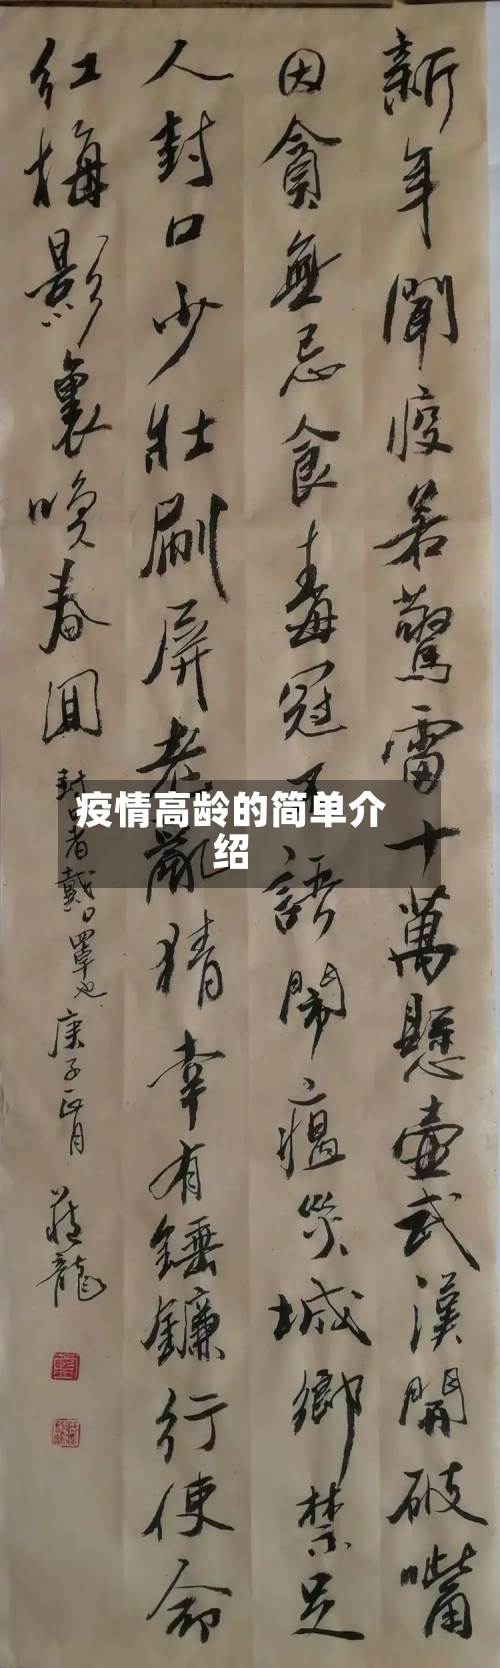 新年聞疫若驚雷十萬懸壺武漢開破嘴
因貪無忌食毒冠不語鬧瘟災城鄉禁足
人封口少壯刷屏老翫猜幸有錘鐮行使命
紅梅影裏喚春回
封口者戴口罩也庚子正月
龍
疫情高龄的简单介
绍